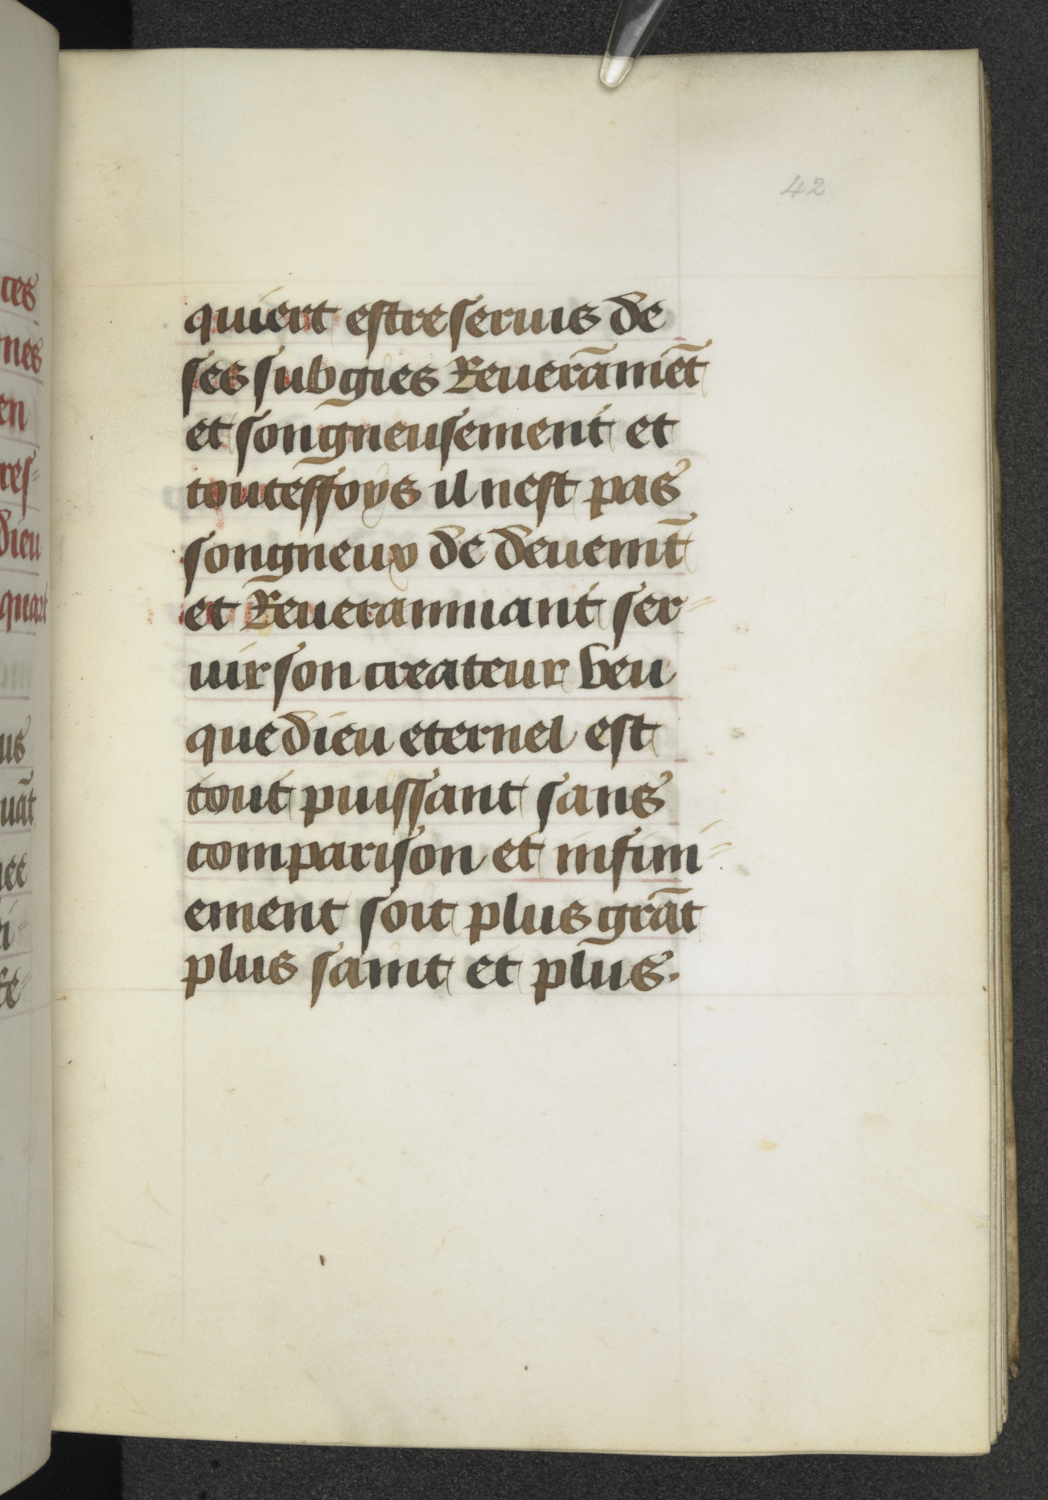 42
quiert estre seruis de
ses subgies Reuerāmēt
et songneusement et
toutesfoys il nest pas
songneux de deuemt̄
et Reueranmant ser-
uir son createur veu
que dieu eternel est
tout puissant sans
comparison et infini-
ement soit plus grāt
plus saint et plus.